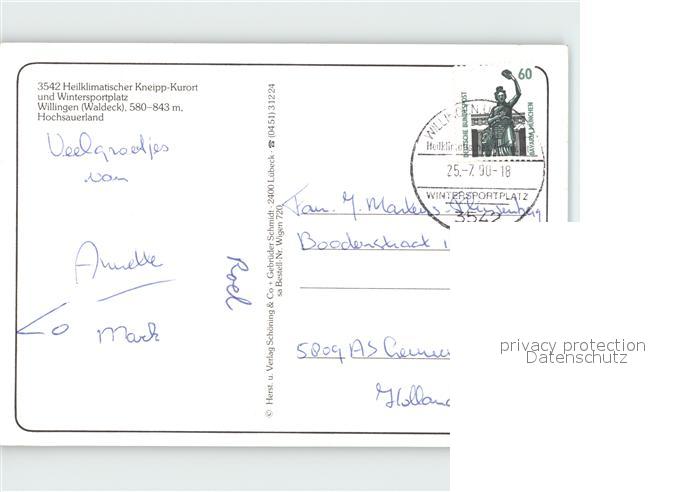 3542 Heilklimatischer Kneipp-Kurort
und Wintersportplatz
Willingen (Waldeck), 580–843 m,
Hochsauerland
Veelgroetjes
van
Annette
Mark
Roel
© Herst. u. Verlag Schöning & Co + Gebrüder Schmidt · 2400 Lübeck · ☎ (04 51) 3 12 24
sa Bestell-Nr. Wigen 720
60
DEUTSCHE BUNDESPOST
BAVARIA MÜNCHEN
WILLINGEN
25.-7.90-18
WINTERSPORTPLATZ
3542
Fam. J. Martens
5809 AS
Holland
privacy protection
Datenschutz